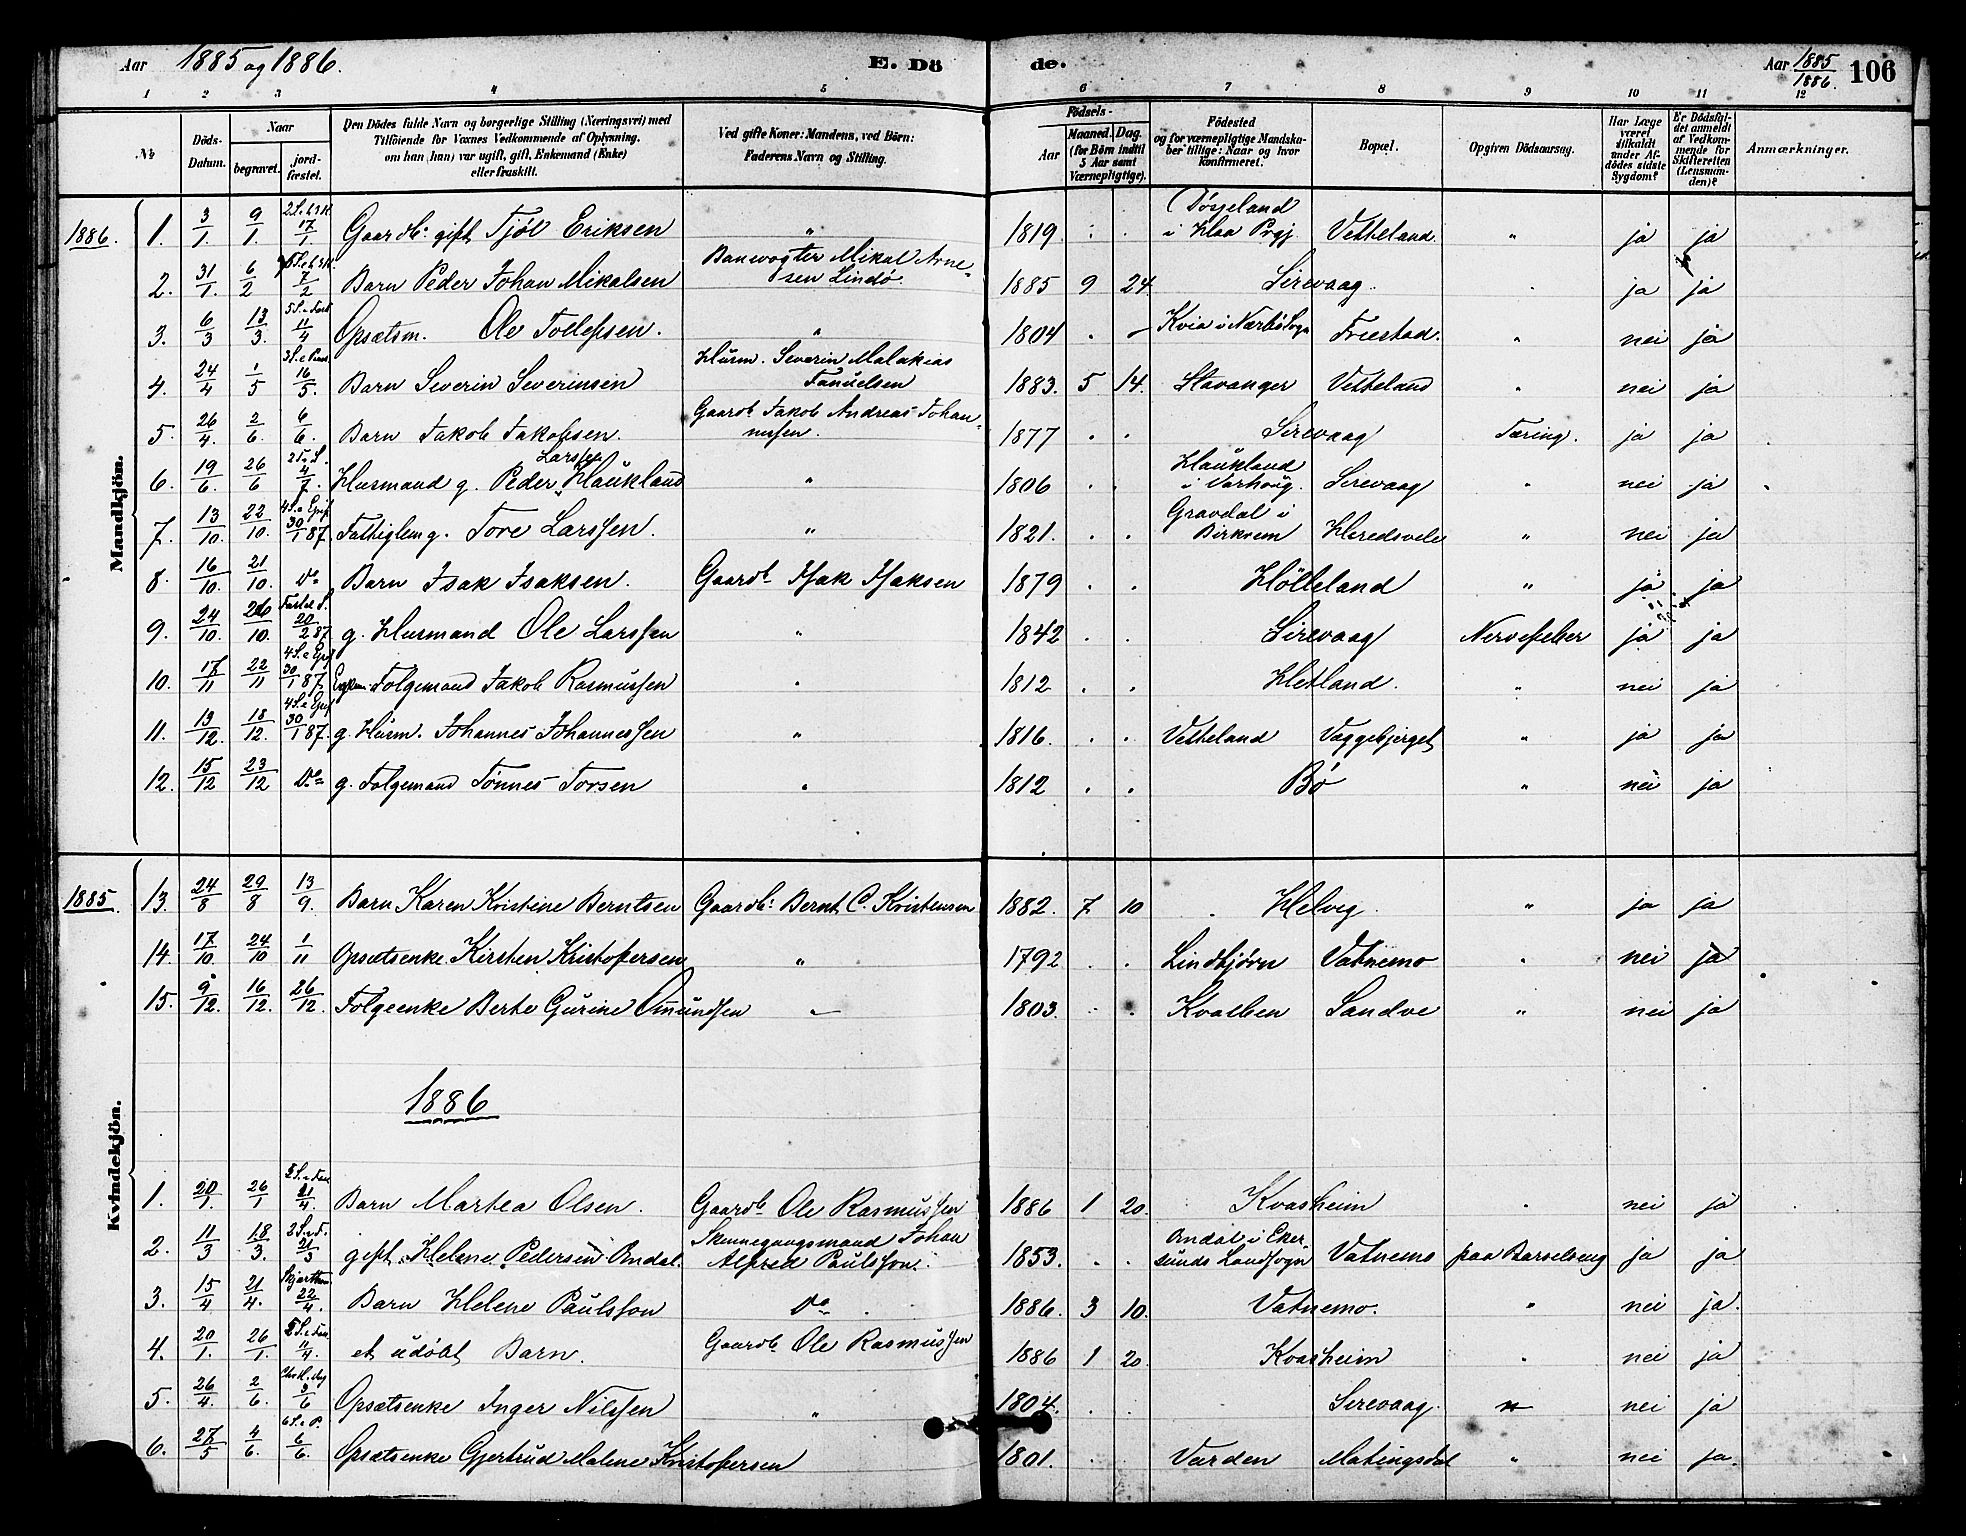 Aar 1885 og 1886. E. Döde. Aar 1885/1886. 106
1 2 3 4 5 6 7 8 9 10 11 12
No. Döds-Datum. Naar begravet. jordfæstet. Den Dödes fulde Navn og borgerlige Stilling (Næringsvei) med Tilföiende for Voxnes Vedkommende af Oplysning, om han (hun) var ugift, gift, Enkemand (Enke) eller fraskilt. Ved gifte Koner: Mandens, ved Börn: Faderens Navn og Stilling. Födsels- Aar Maaned. Dag. (for Börn indtil 5 Aar samt Værnepligtige). Födested og for værnepligtige Mandskaber tillige: Naar og hvor konfirmeret. Bopæl. Opgiven Dödsaarsag. Har Læge været tilkaldt under Afdödes sidste Sygdom? Er Dödsfaldet anmeldt af Vedkommende for Skifteretten (Lensmanden)? Anmærkninger.
Mandkjön.
1886. 1. 3/1. 9/1. 17/1. Gaardb. gift Tjøl Eriksen " 1819. . . i Klaa Prgj. Vetteland " ja ja
2. 31/1. 6/2 7/2 Barn Peder Johan Mikalsen Banevogter Mikal Arnesen Lindö. 1885 9 24 Sirevaag. ja ja
3. 6/3 13/3. 11/4 Opsætsm. Ole Tollefsen. " 1804 . Kvia i Nærbö Sogn Friestad. " nei ja
4. 24/4 1/5 16/5. Barn Severin Severinsen Husm. Severin Malakias Tanuelsen 1883. 5 14. Stavanger Vetteland " nei ja
5. 26/4. 2/6. 6/6. Barn Jakob Jakobsen. Gaardb. Jakob Andreas Johannessen. 1877 . . Sirevaag Tæring. ja ja
6. 19/6. 26/6 4/7. Husmand g. Peder Larssen Haukland " 1806 . . Haukland i Varhoug. Sirevaag " nei ja
7. 13/10. 22/10. 4 S. e Epif. 30/1 87. Fattiglem g. Tore Larssen. " 1821. . . Gravdal i Birkrem Heredsvele " nei ja
8. 16/10. 21/10. Do Barn Isak Isaksen. Gaardb. Isak Isaksen 1879 . . Hölleland " ja ja
9. 24/10. 26/10. 20/2 87 g. Husmand Ole Larssen " 1842 . . Sirevaag Nervefeber ja ja
10. 17/11 22/11 4 S. e Epif 30/1 87. Folgemand Jakob Rasmussen " 1812 . . Hetland. " nei ja
11. 13/12. 18/12. 4 S. e Epif 30/1 87. g. Husm. Johannes Johannessen " 1816. . . Vetteland Vaggebjerget " ja ja
12. 15/12 23/12 Do g. Folgemand Tönnes Torsen " 1812 . . Bö " nei ja
Kvindekjön.
1885. 13. 24/8 29/8 13/9. Barn Karen Kristine Berntsen Gaardb. Bernt C. Kristensen 1882. 7 10 Helvig. " ja ja
14. 17/10. 24/10 1/11 Opsætsenke Kirsten Kristofersen " 1792 . . Lindtjörn Vatnemo " nei ja
15. 9/12. 16/12. 26/12. Folgeenke Berte Gurine Omundsen " 1803. . . Kvalben Sandve " nei ja
1886
1. 20/1. 26/1 21/4. Barn Martea Olsen. Gaardb. Ole Rasmussen 1886 1 20. Kvasheim " nei ja
2. 11/3 18/3. 21/3 gift Helene Pedersen Omdal. Skinnegangsmand Johan Alfred Paulsson. 1853. . . Omdal i Ekersunds Landsogn Vatnemo paa Barselseng ja ja
3. 15/4 21/4. 22/4. Barn Helene Paulsson Do 1886. 3 10. Vatnemo. " nei ja.
4. 20/1. 26/1. 11/4. et udöbt Barn. Gaardb. Ole Rasmussen 1886 1 20 Kvasheim " nei ja
5. 26/4. 2/6. 3/6 Opsætsenke Inger Nilssen " 1804. . Sirevaag. " nei ja
6. 27/5 4/6. 6 S. e P. 6/6. Opsætsenke Gjertrud Malene Kristofersen 1801. . . Varden Matingsdal " nei ja.